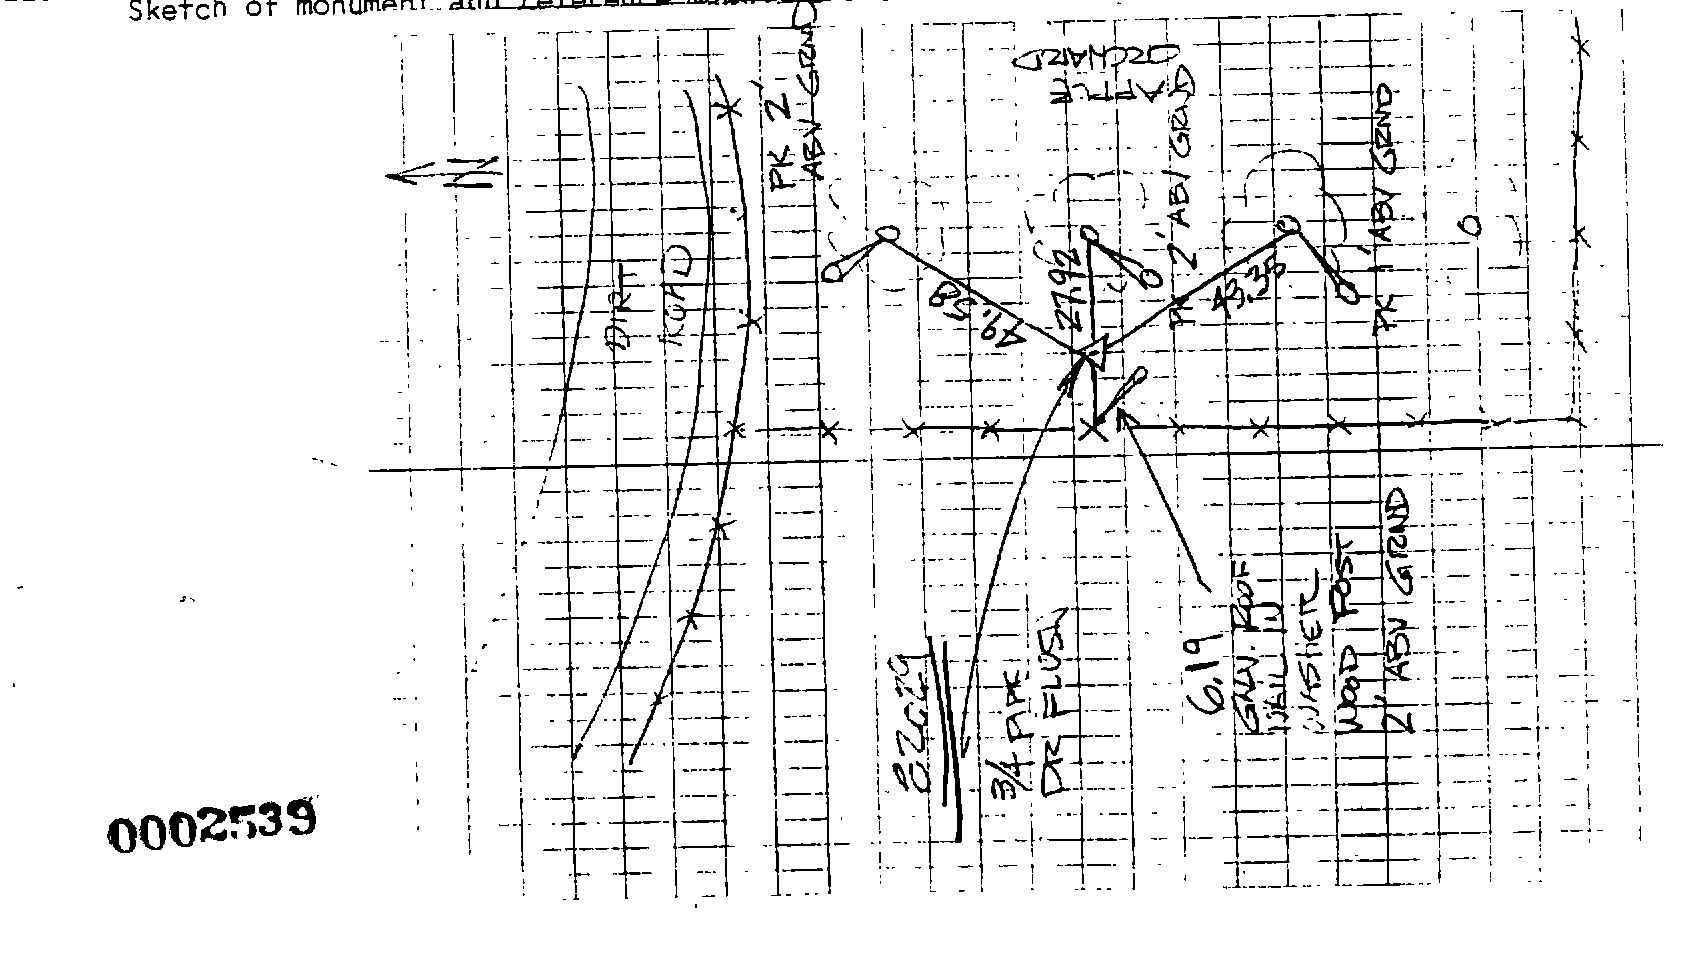 Sketch of monument and reference
N
DIRT
ROAD
PK 2'
ABV GRND
ORCHARD
49.58
27.92
PK 2' ABV GRND
43.35
PK 1' ABV GRND
3/4 PIPE
DR FLUSH
6.19
GALV. ROOF
NAIL IN
WASHER
WOOD POST
2' ABV GRND
0002539